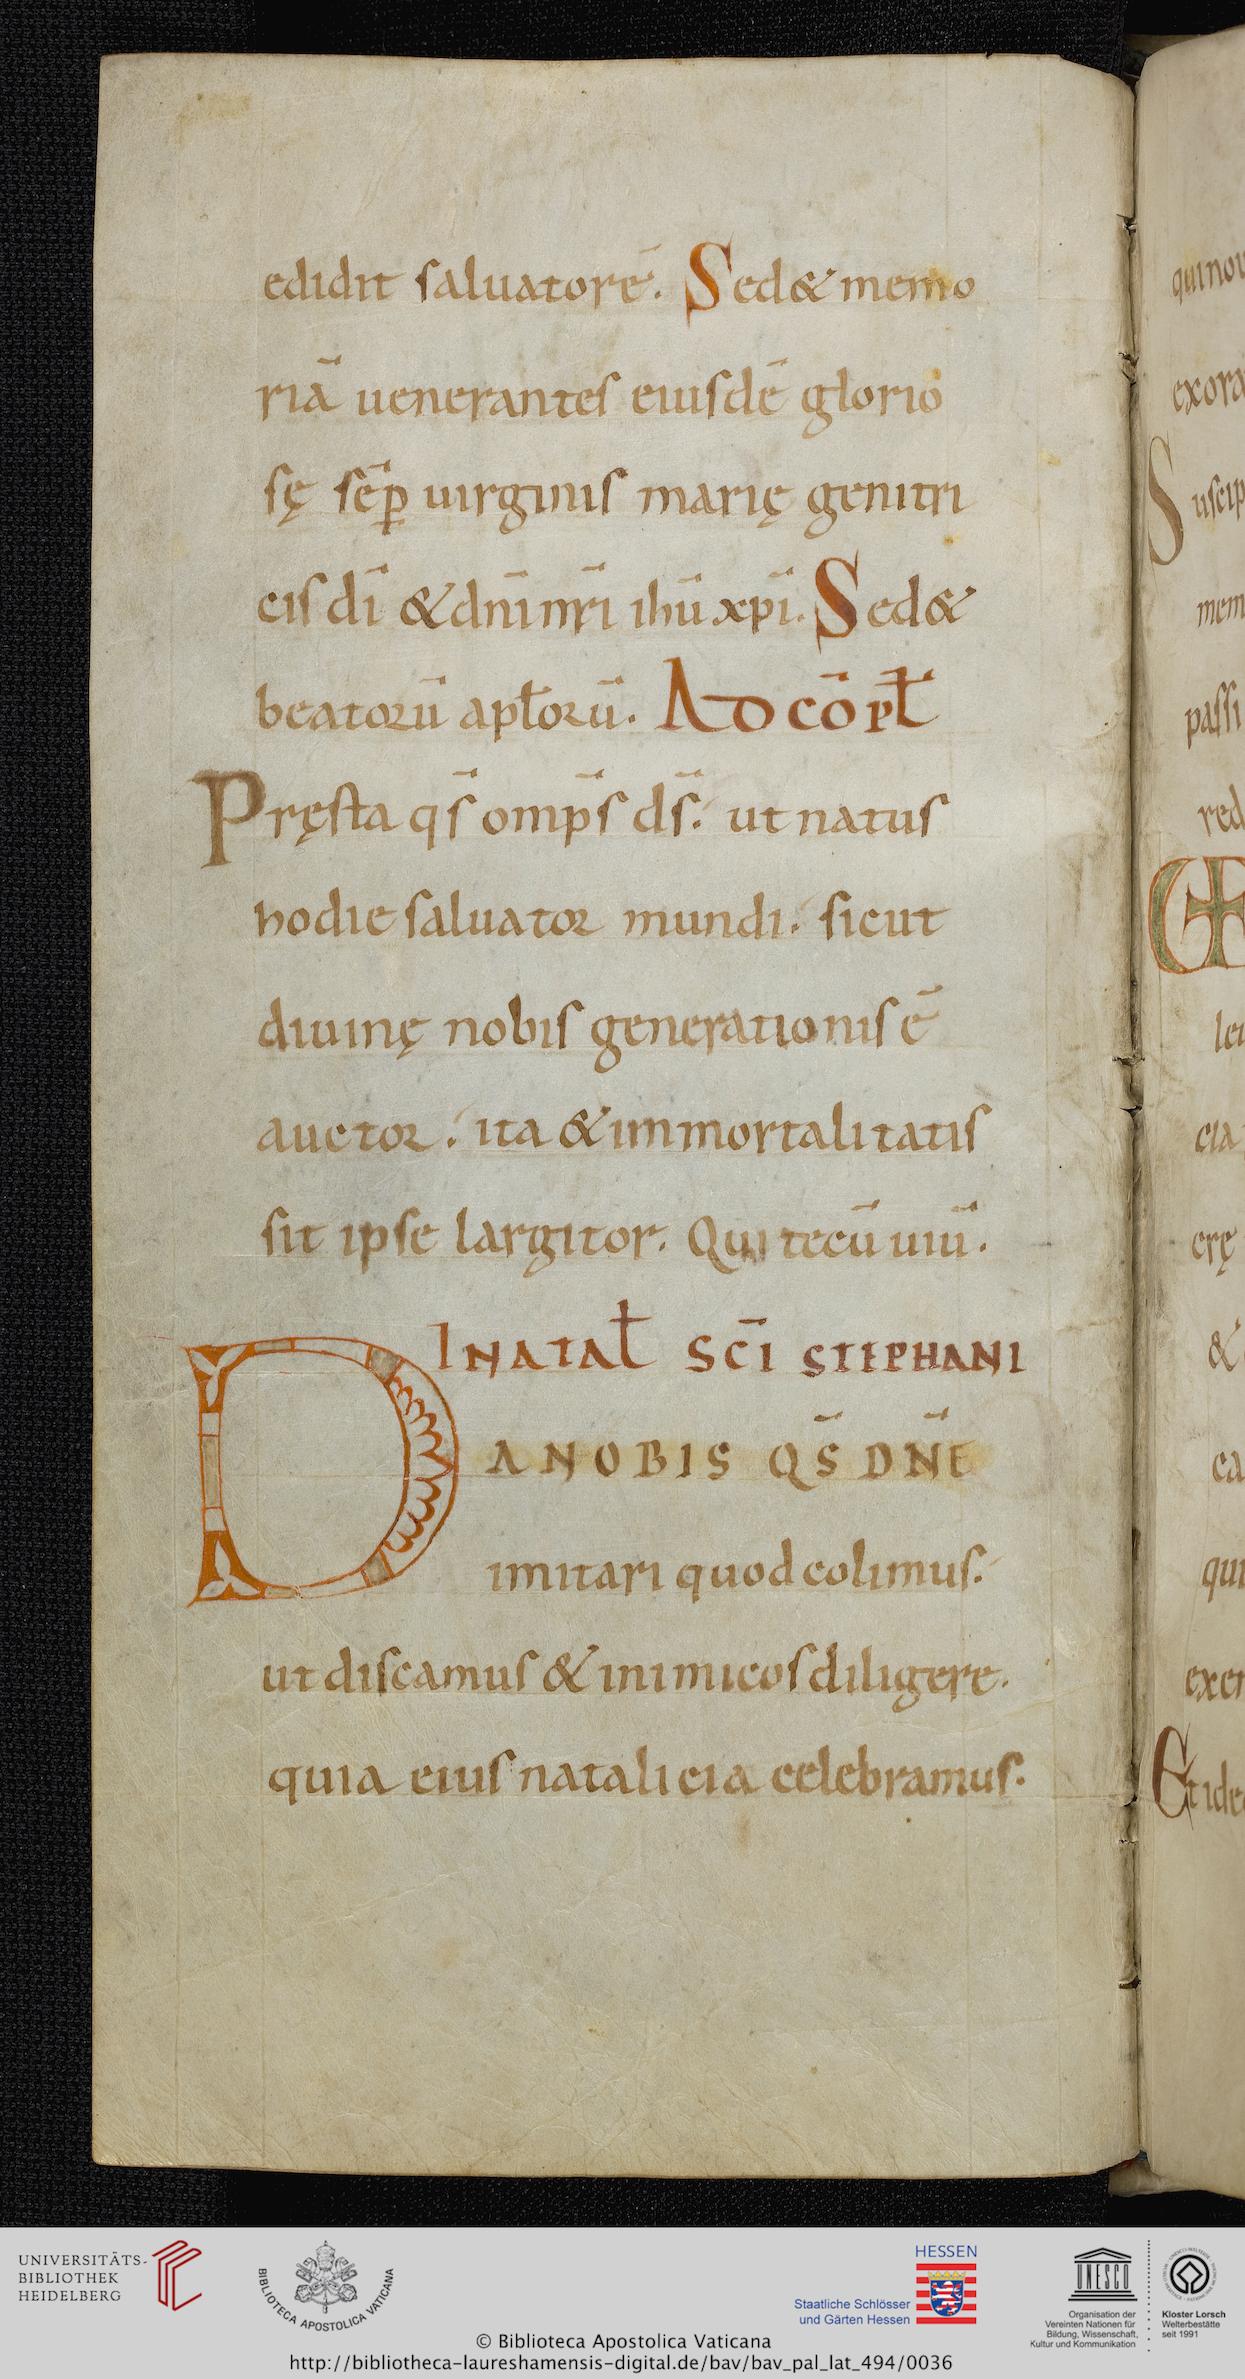 edidit saluatorē. Sed & memo
riā uenerantes eiusdē glorio
sę sēp uirginis marię genitri
cis dī & dnī nrī ihū xpī. Sed &
beatorū aptorū. AD CŌPL
Pręsta qs̄ omps̄ ds̄. ut natus
hodie saluator mundi. sicut
diuinę nobis generationis ē
auctor. ita & immortalitatis
sit ipse largitor. Qui tecū uiū.
IN NATAL SC̄I STEPHANI
DA NOBIS QS̄ DN̄E
imitari quod colimus.
ut discamus & inimicos diligere.
quia eius natalicia celebramus.
quinou
exora
Suscip
mem
passi
red
leu
cia
erę
&
ca
qui
exer
Et ide
UNIVERSITÄTS-
BIBLIOTHEK
HEIDELBERG
BIBLIOTECA APOSTOLICA VATICANA
HESSEN
Staatliche Schlösser
und Gärten Hessen
UNESCO
Organisation der
Vereinten Nationen für
Bildung, Wissenschaft,
Kultur und Kommunikation
Kloster Lorsch
Welterbestätte
seit 1991
© Biblioteca Apostolica Vaticana
http://bibliotheca-laureshamensis-digital.de/bav/bav_pal_lat_494/0036